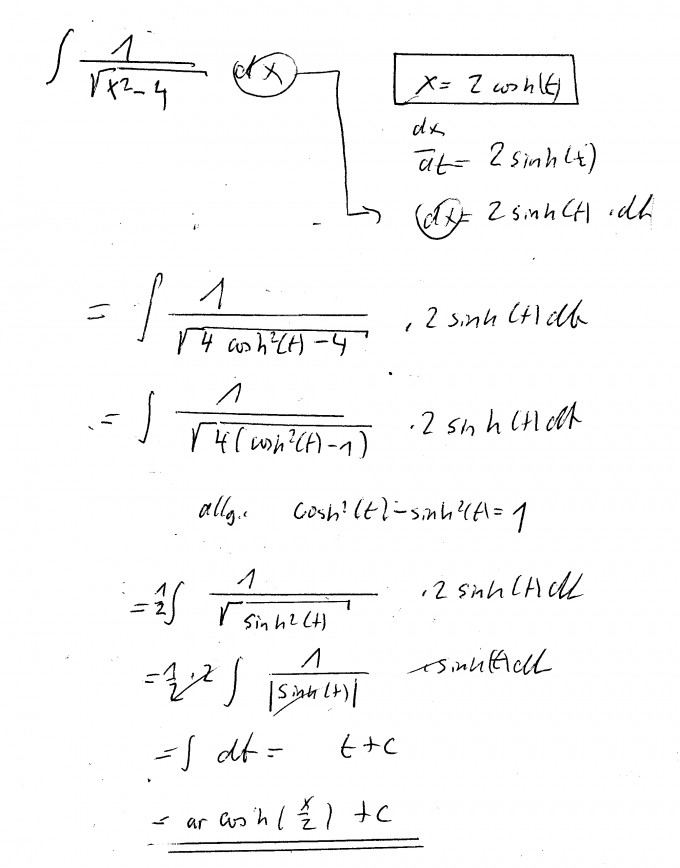 ∫ 1/√(x²-4) dx
x = 2 cosh(t)
dx/dt = 2 sinh(t)
dx = 2 sinh(t) · dt
= ∫ 1/√(4 cosh²(t) - 4) · 2 sinh(t) dt
= ∫ 1/√(4(cosh²(t) - 1)) · 2 sinh(t) dt
allg.: cosh²(t) - sinh²(t) = 1
= 1/2 ∫ 1/√(sinh²(t)) · 2 sinh(t) dt
= 1/2 · 2 ∫ 1/|sinh(t)| sinh(t) dt
= ∫ dt = t + c
= ar cosh(x/2) + c